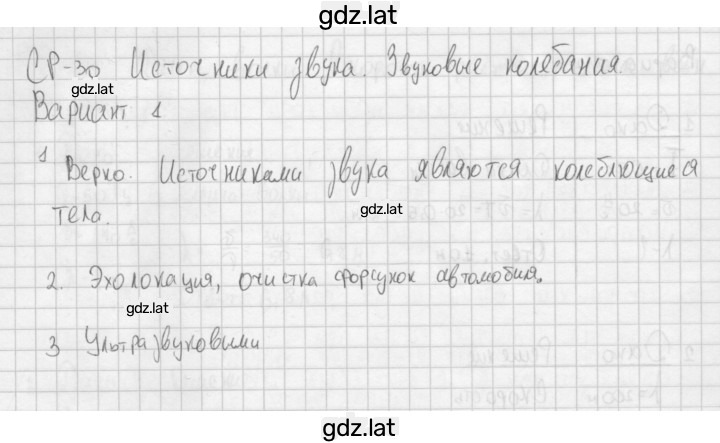 gdz.lat
СР-30 Источники звука. Звуковые колебания.
gdz.lat
Вариант 1
1 Верно. Источниками звука являются колеблющиеся
gdz.lat
тела.
2. Эхолокация, очистка форсунок автомобиля.
gdz.lat
3 Ультразвуковыми
gdz.lat